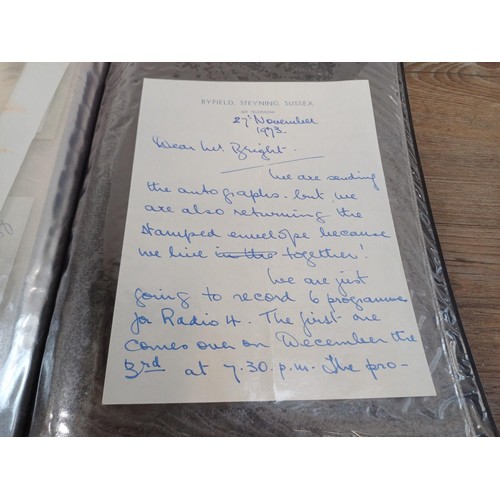 BYFIELD, STEYNING, SUSSEX
27th November
1973.
Dear Mr Bright.
We are sending
the autographs. but we
are also returning the
stamped envelope because
we live in the together!
We are just
going to record 6 programme
for Radio 4. The first one
comes over on December the
3rd at 7.30.p.m. The pro-